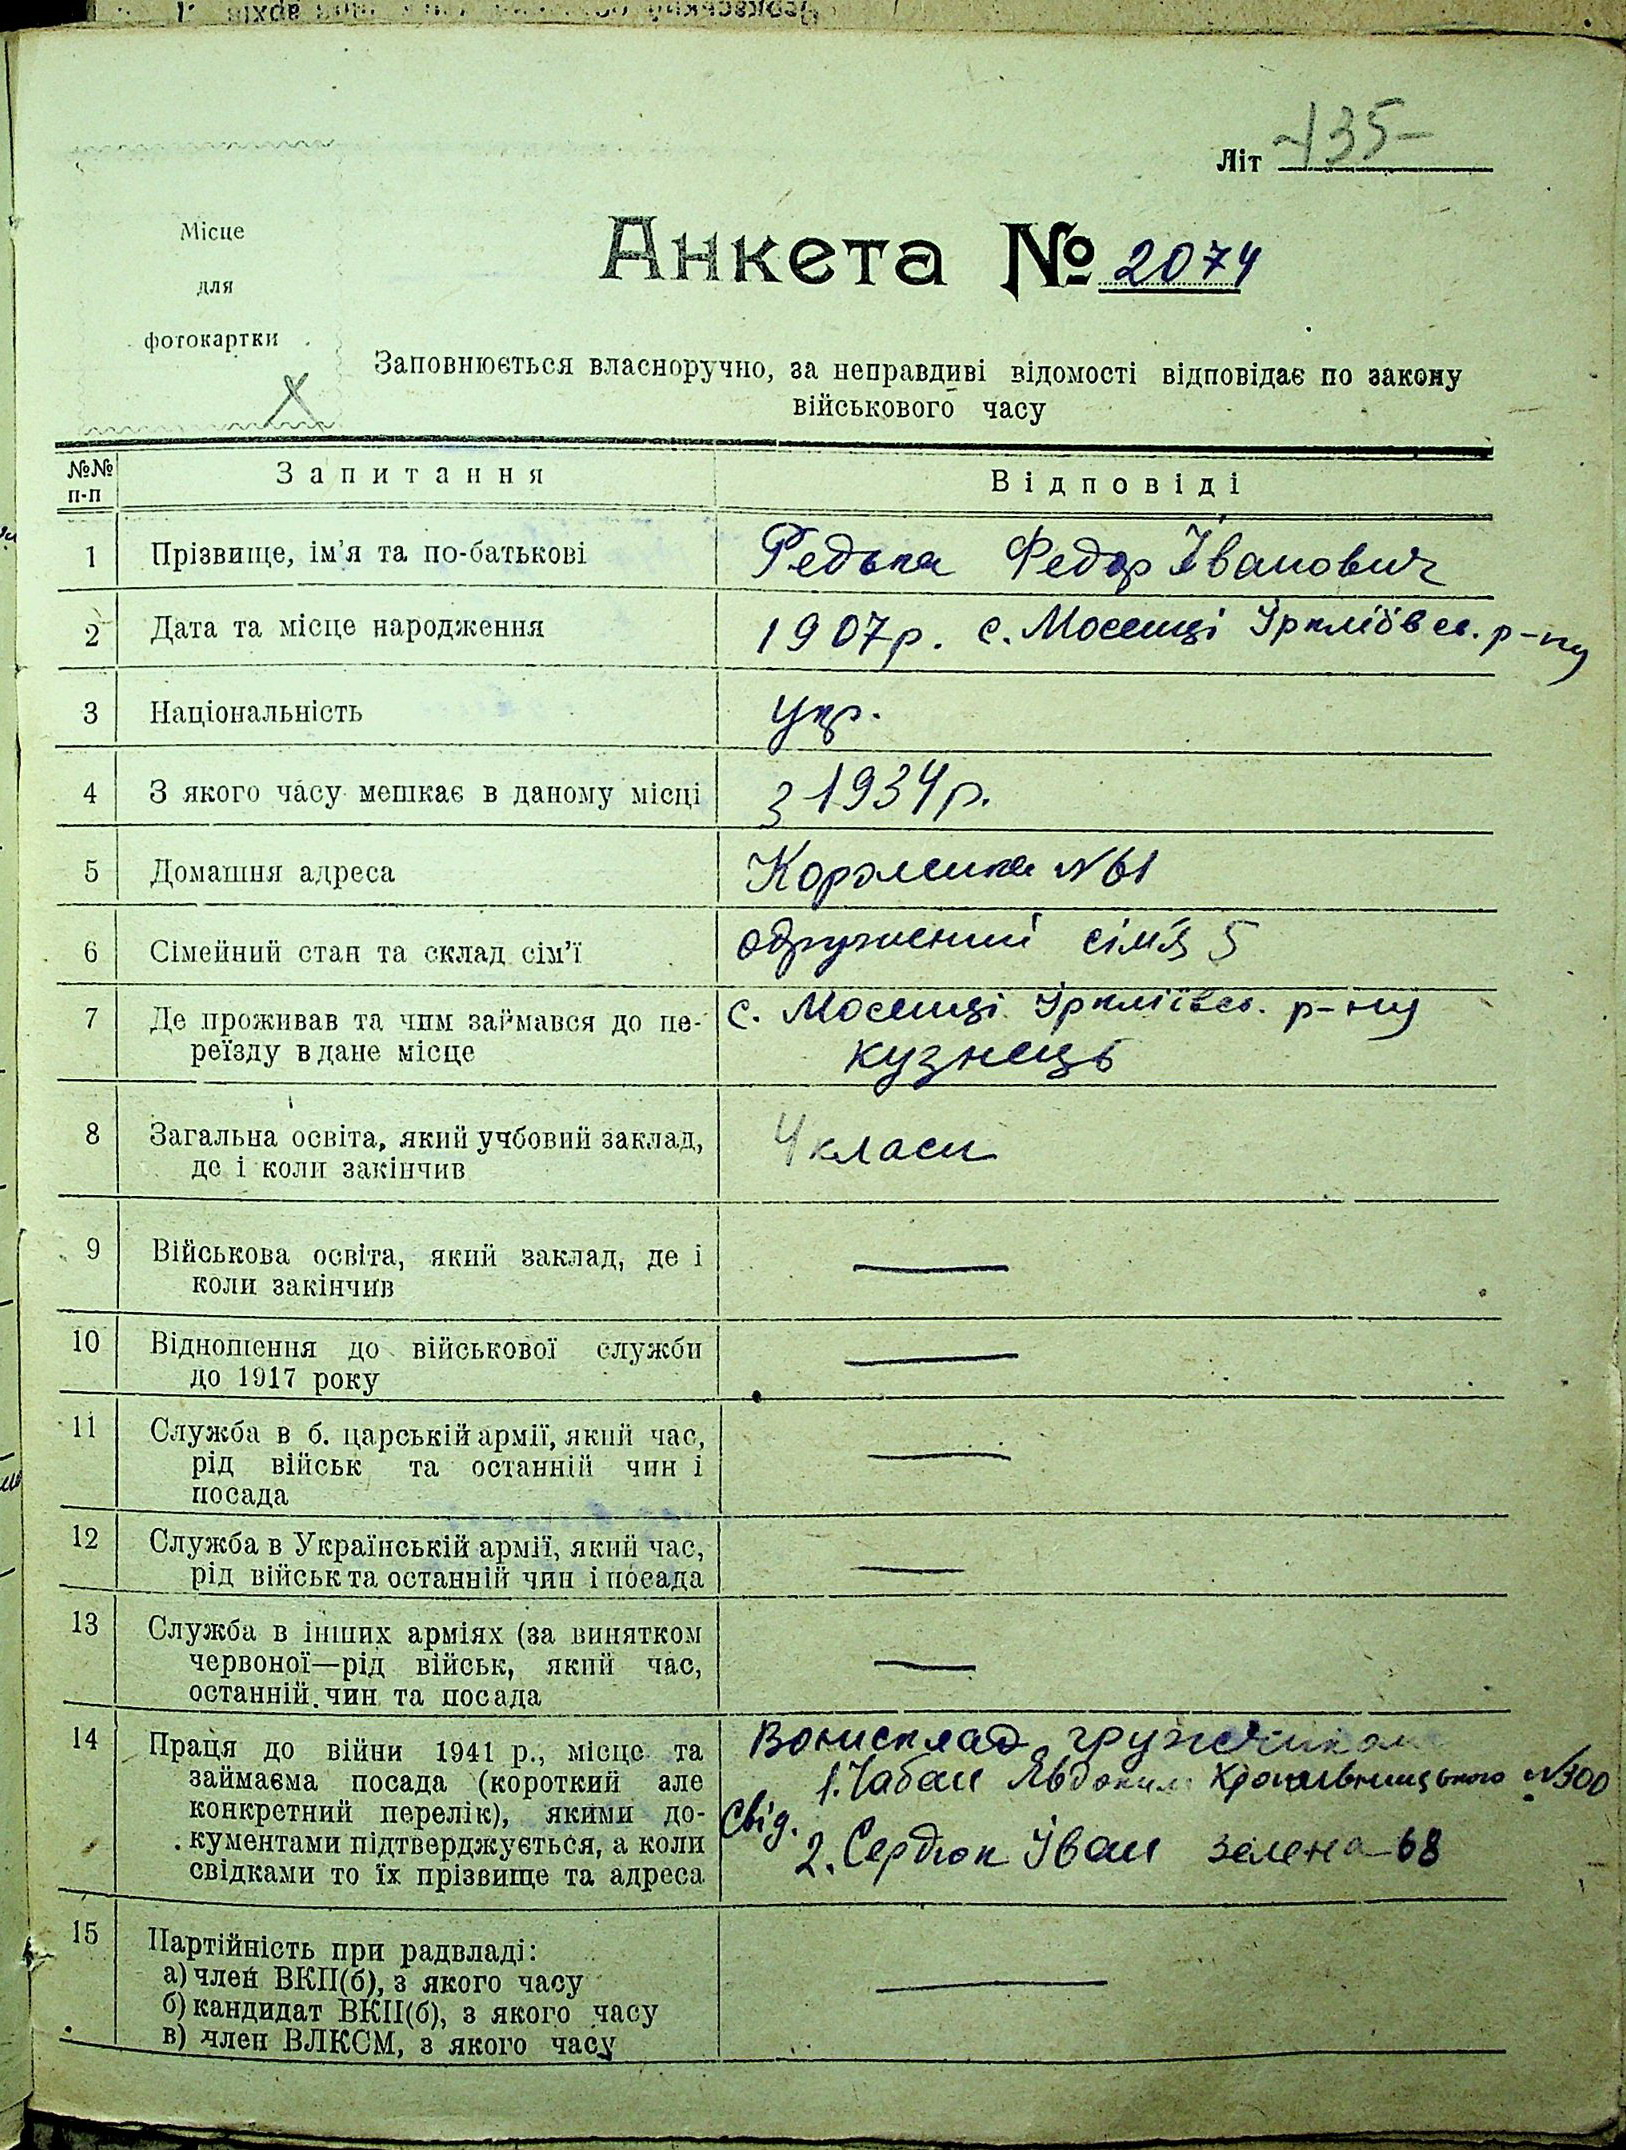 Літ 135
Місце
для
фотокартки
Анкета № 2074
Заповнюється власноручно, за неправдиві відомості відповідає по закону
військового часу
№№
п-п
Запитання
Відповіді
1 Прізвище, ім’я та по-батькові
Редька Федор Іванович
2 Дата та місце народження
1907р. с. Мосенці Іркліївсь. р-ну
3 Національність
укр.
4 З якого часу мешкає в даному місці
з 1934р.
5 Домашня адреса
Короленка №61
6 Сімейний стан та склад сім’ї
одружений сім'я 5
7 Де проживав та чим займався до пе-
реїзду в дане місце
с. Мосенці Іркліївсь. р-ну
кузнець
8 Загальна освіта, який учбовий заклад,
де і коли закінчив
4 класи
9 Військова освіта, який заклад, де і
коли закінчив
—
10 Відношення до військової служби
до 1917 року
—
11 Служба в б. царській армії, який час,
рід військ та останній чин і
посада
—
12 Служба в Українській армії, який час,
рід військ та останній чин і посада
—
13 Служба в інших арміях (за винятком
червоної—рід військ, який час,
останній чин та посада
—
14 Праця до війни 1941 р., місце та
займаєма посада (короткий але
конкретний перелік), якими до-
кументами підтверджується, а коли
свідками то їх прізвище та адреса
Воєнсклад грузчиком
1. Чабан Явдоким №300
Свід.
2. Сердюк Іван Зелена 68
15 Партійність при радвладі:
а) член ВКП(б), з якого часу
б) кандидат ВКП(б), з якого часу
в) член ВЛКСМ, з якого часу
—